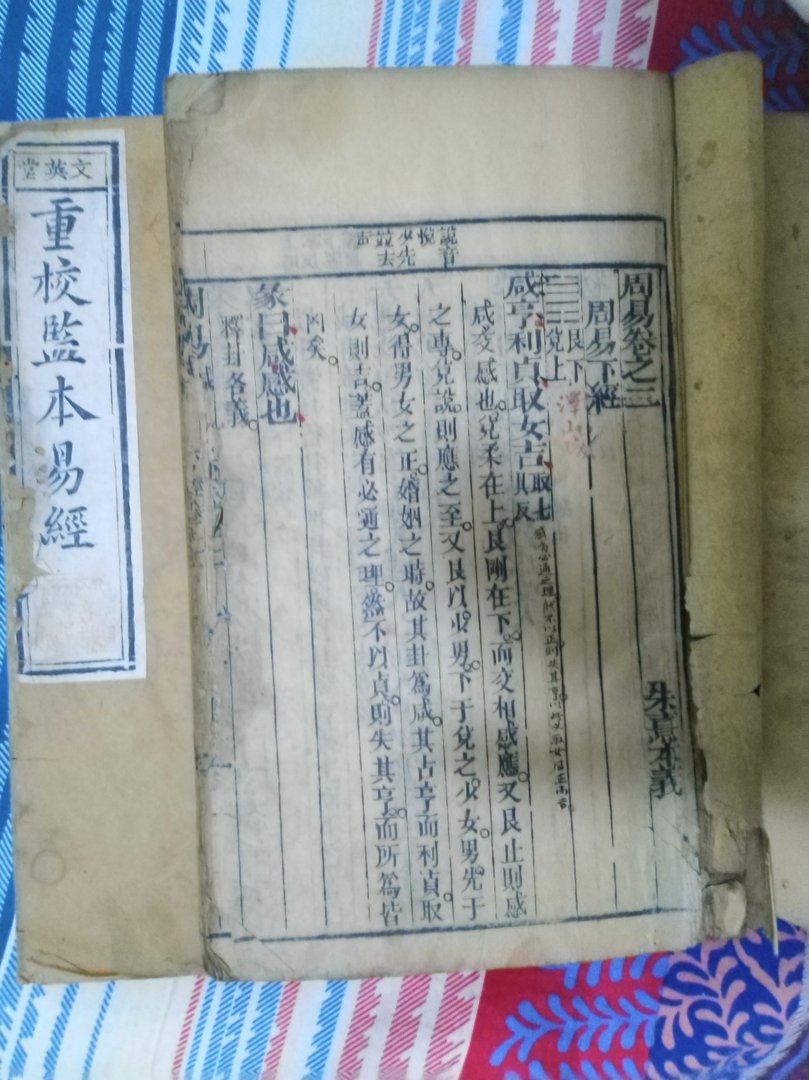 文英堂
重校監本易經
説音
悅
少先
並去
声
周易卷之二
朱熹本義
周易下經
艮下
兌上
澤山咸
咸亨利貞取女吉取七具反
咸交感也兌柔在上艮剛在下而交相感應又艮止則感
之專兌說則應之至又艮以少男下于兌之少女男先于
女得男女之正婚姻之時故其卦爲咸其占亨而利貞取
女則吉葢感有必通之理然不以貞則失其亨而所爲皆
凶矣
彖曰咸感也
釋卦名義